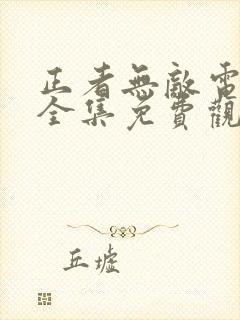 正者無敵電
全集免費觀
丘墟